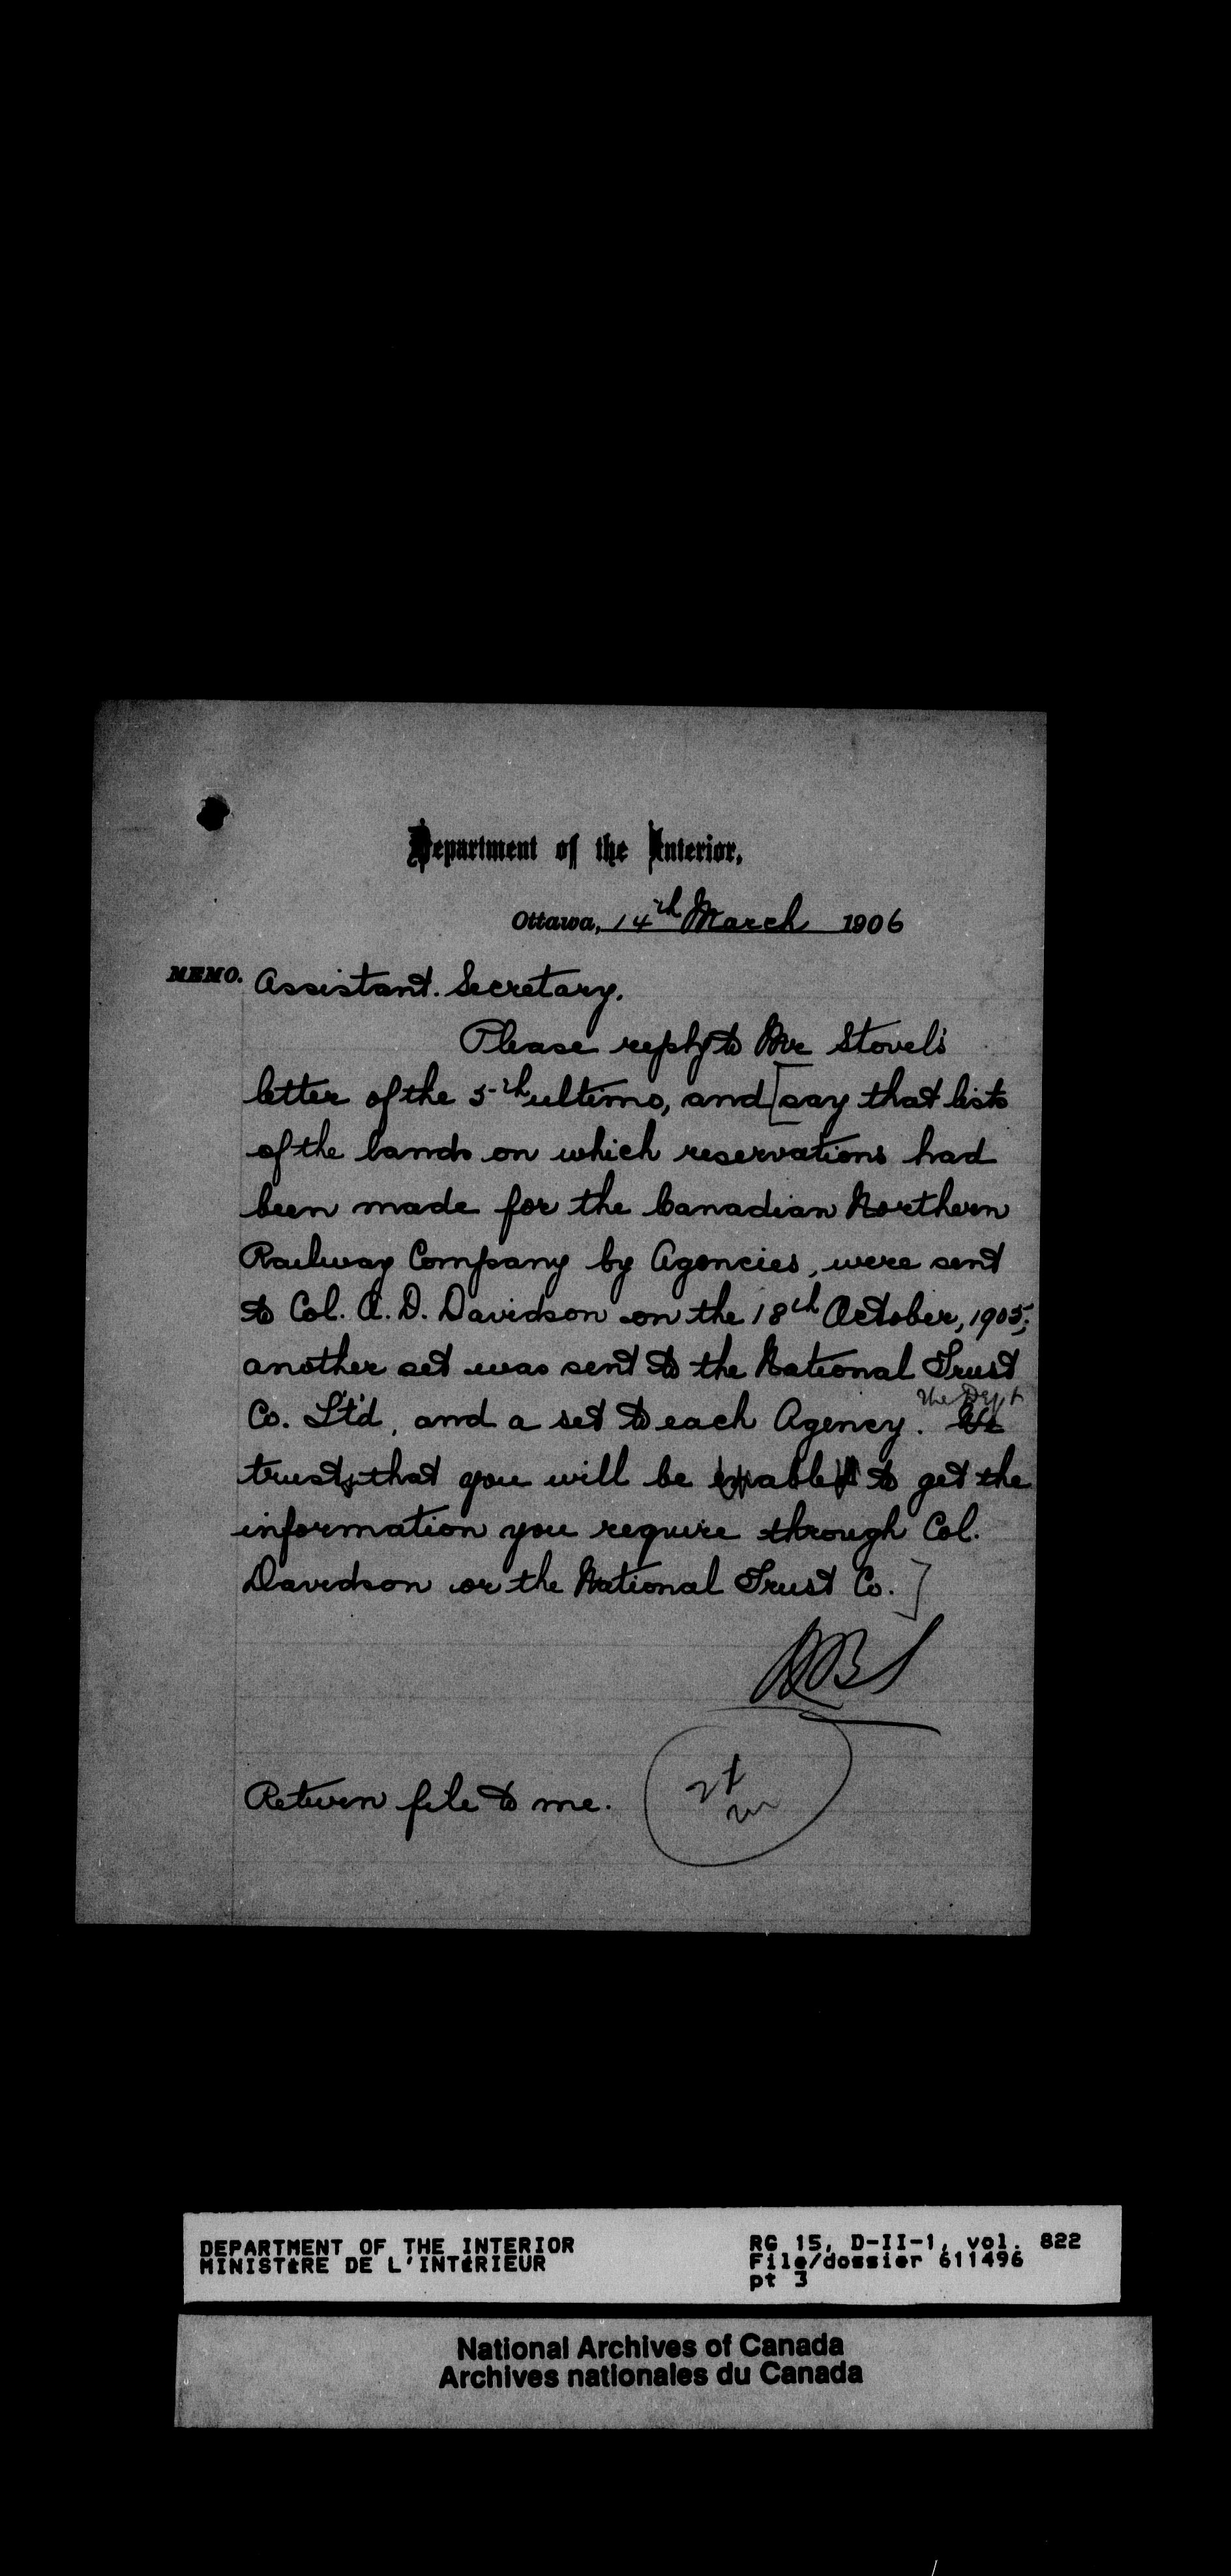 Department of the Interior,
Ottawa, 14th March 1906
MEMO. Assistant. Secretary.
Please reply to Mr Stovel's
letter of the 5th ultimo, and [say that lists
of the lands on which reservations had
been made for the Canadian Northern
Railway Company by Agencies, were sent
to Col. A. D. Davidson on the 18th October, 1905;
another set was sent to the National Trust
the Dept
Co. Lt'd, and a set to each Agency. We
trusts that you will be able to get the
information you require through Col.
Davidson or the National Trust Co.]
Return file to me.
DEPARTMENT OF THE INTERIOR
MINISTèRE DE L'INTéRIEUR
RG 15, D-II-1, vol. 822
File/dossier 611496
pt 3
National Archives of Canada
Archives nationales du Canada